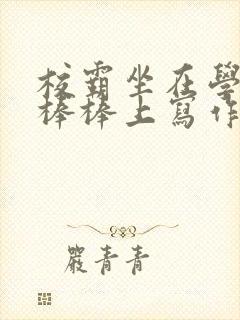 校霸坐在學
棒棒上寫作
嚴青青